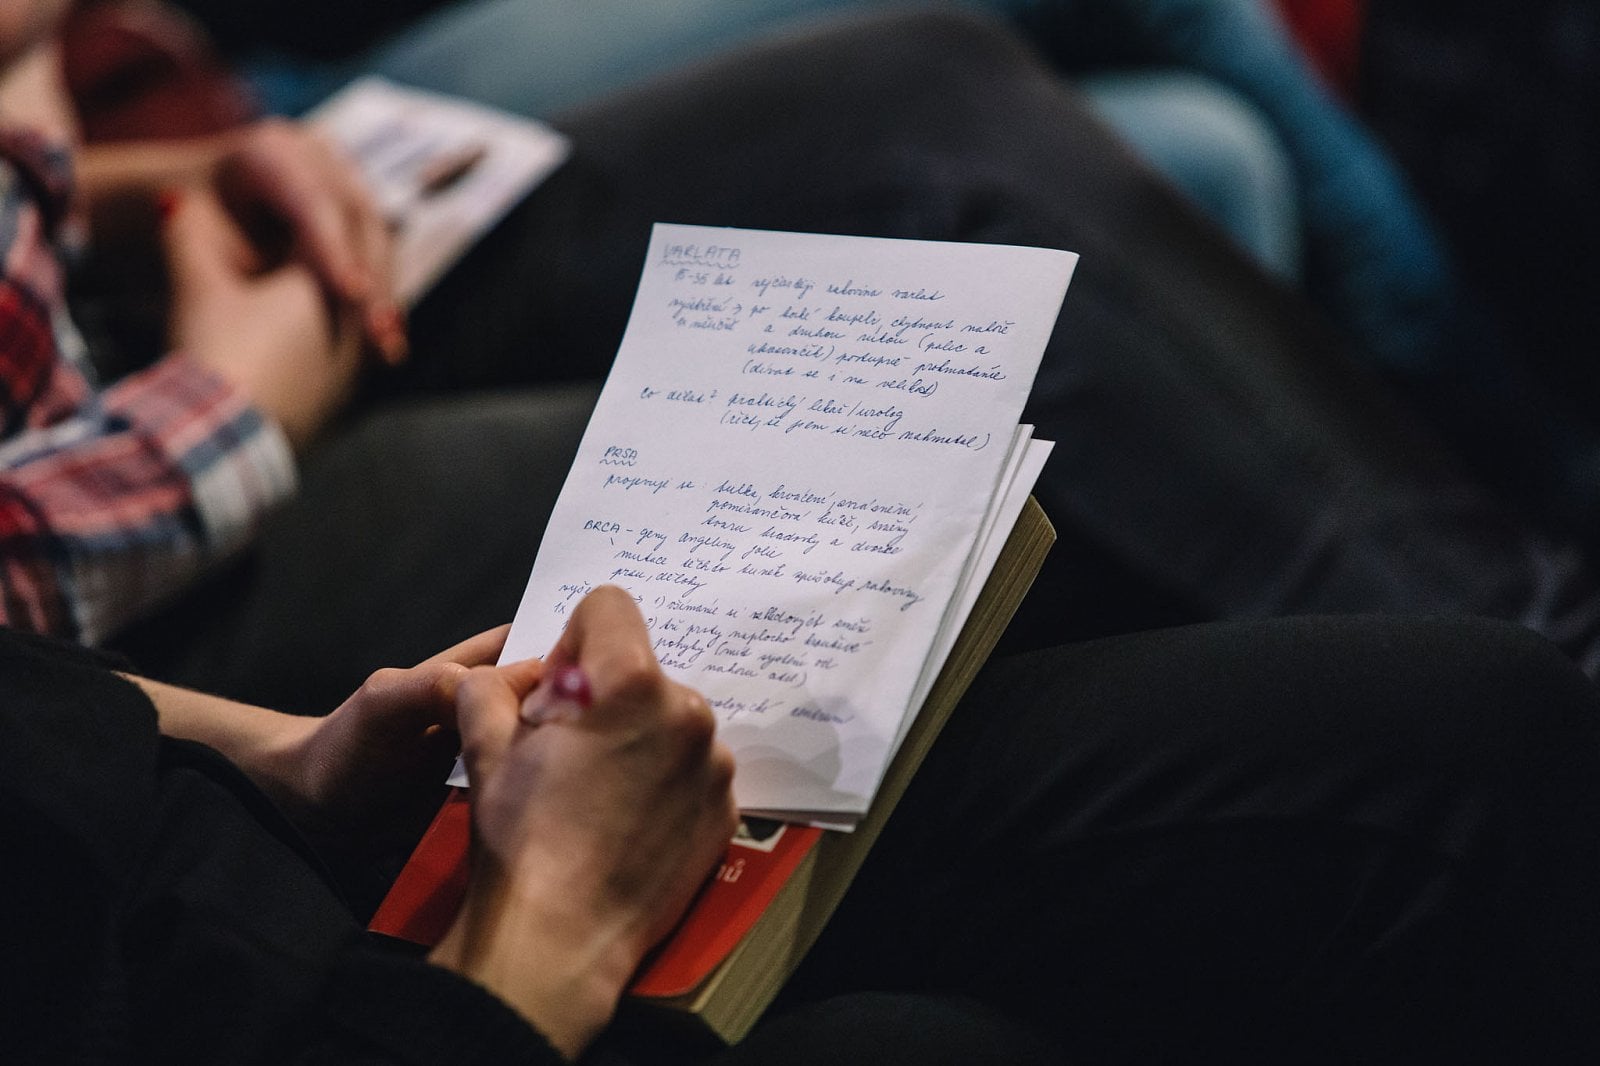 VARLATA
15-35 let nejčastěji rakovina varlat
vyšetření → po horké koupeli, chytnout nahoře
1x měsíčně a druhou rukou (palec a
ukazováček) postupné prohmatání
(dívat se i na velikost)
co dělat? praktický lékař/urolog
(říct, že jsem si něco nahmatal)
PRSA
projevují se: bulka, krvácení, svrasknění,
pomerančová kůže, změny
tvaru bradavky a dvorce
BRCA - geny Angeliny Jolie
mutace těchto buněk způsobuje rakoviny
prsu, dělohy
→ 1) všímání si vzhledových změn
1x 2) tři prsty naplocho krouživé
pohyby (mít systém od
nahoru atd.)
centrum
ů